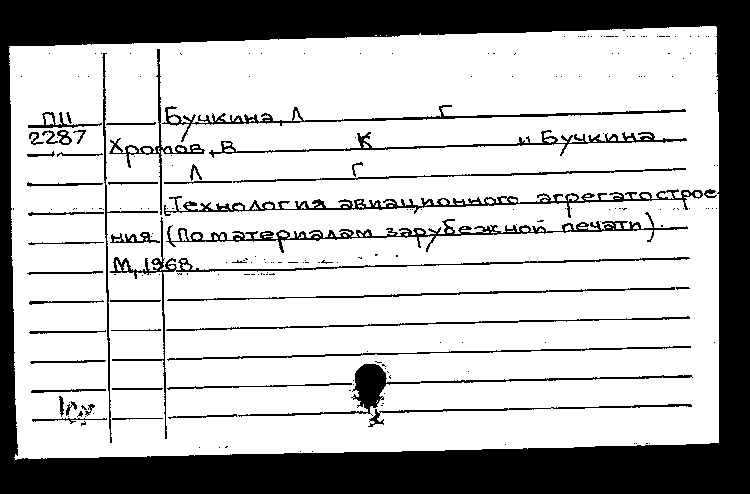 ПII Бучкина, Л Г
2287 Хромов, В К и Бучкина,
Л Г
Технология авиационного агрегатострое-
ния (По материалам зарубежной печати).
М, 1968.